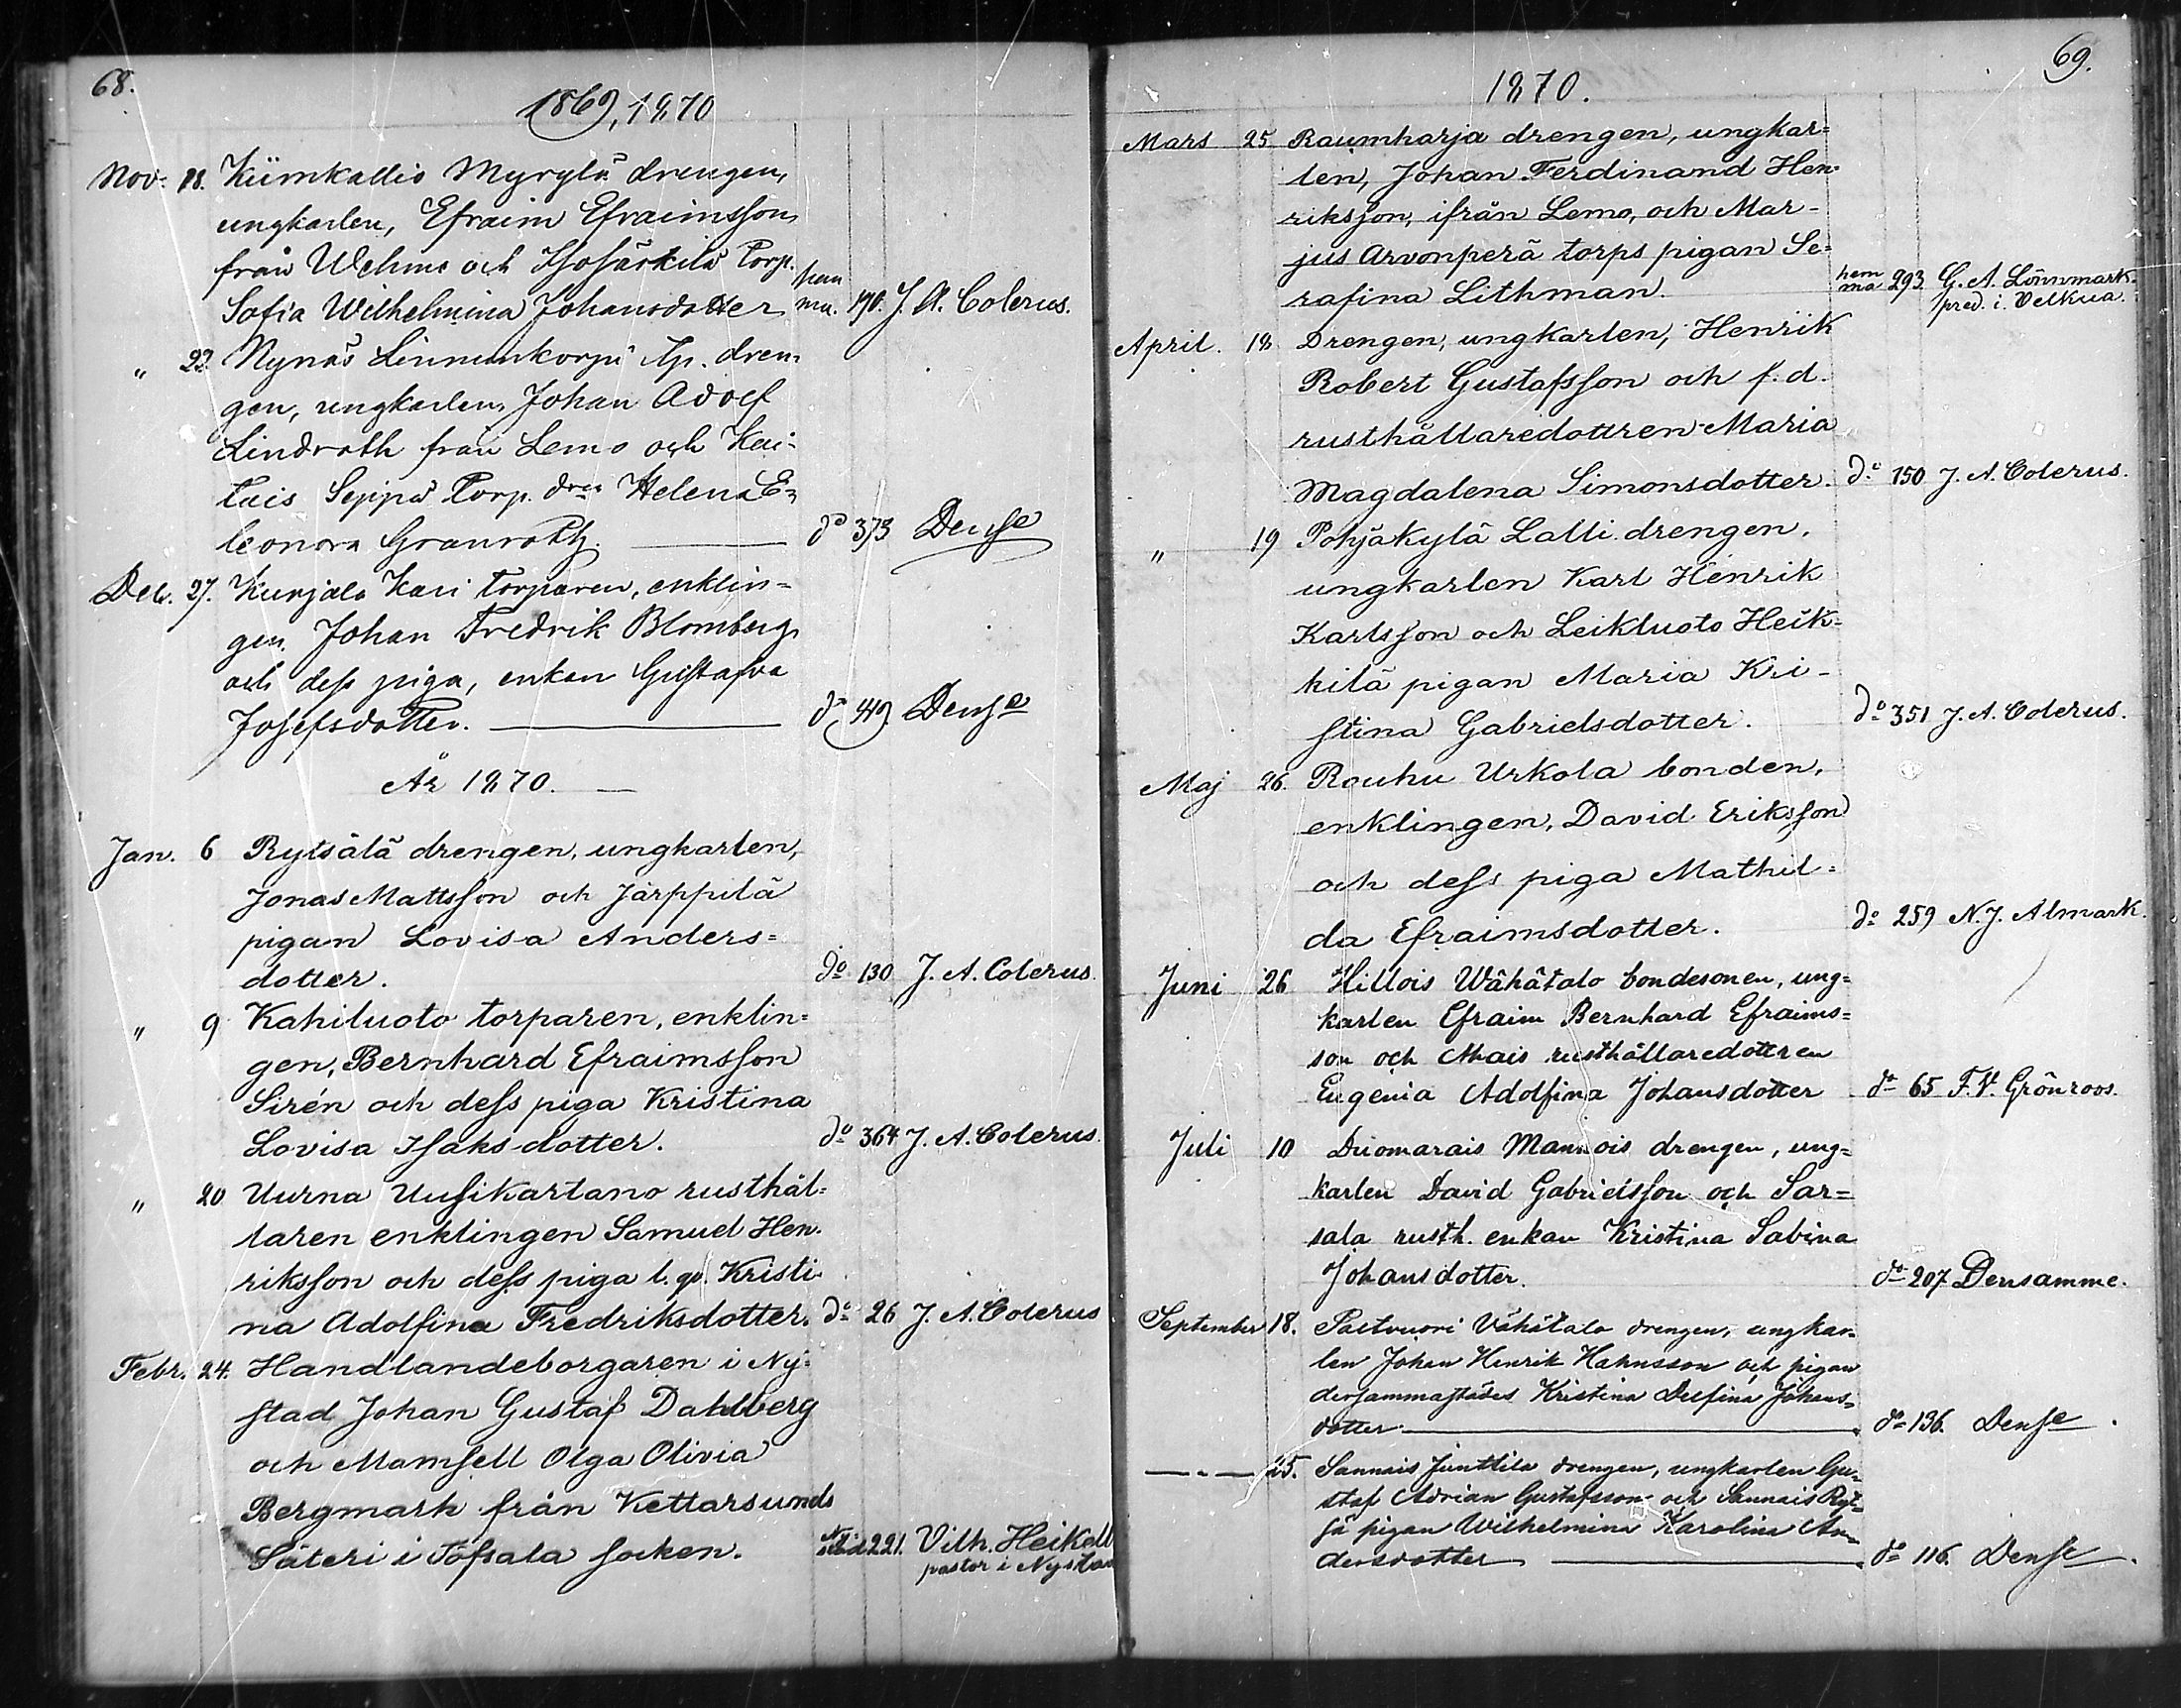 68.
1869, 1870
Nov. 18. Kiimkallio Myrylä drengen,
ungkarlen, Efraim Efraimsson
från Wehmo och Isosärkilä Torp.
Sofia Wilhelmina Johansdotter hem ma. 190. J. A. Colerus.
" 22. Nynäs tp. dren-
gen, ungkarlen, Johan Adolf
Lindroth från Lemo och Kai-
tais Seppä Torp. dren Helena E-
leonora Granroth. do 373 Dense
Dec. 27. Kurjala Kari torparen, enklin-
gen, Johan Fredrik Blomberg
och dess piga, enkan Gustafva
Josefsdotter. do 419 Dense
År 1870.
Jan. 6 Rytsälä drengen, ungkarlen,
Jonas Mattsson och Järppilä
pigan Lovisa Anders-
dotter. do 130 J. A. Colerus.
" 9 Kahiluoto torparen, enklin-
gen, Bernhard Efraimsson
Sirén och dess piga Kristina
Lovisa Isaksdotter. do 364 J. A. Colerus.
" 20 Uurna Uusikartano rusthål-
laren enklingen Samuel Hen-
riksson och dess piga l. qv. Kristi-
na Adolfina Fredriksdotter. do 26 J. A. Colerus
Febr. 24. Handlandeborgaren i Ny-
stad Johan Gustaf Dahlberg
och Mamsell Olga Olivia
Bergmark från Kettarsunds
Säteri i Töfsala socken. Ny- stad 221. Vilh. Heikell
pastor i Nystad
69.
1870.
Mars 25 Raumharja drengen, ungkar-
len, Johan Ferdinand Hen-
riksson, ifrån Lemo, och Mar-
jus Arvonperä torps pigan Se-
rafina Lithman. hem ma 293 G. A. Lönnmark
pred. i. Velkua.
April. 18 Drengen, ungkarlen, Henrik
Robert Gustafsson och f. d.
rusthållaredottren Maria
Magdalena Simonsdotter. do 150 J. A. Colerus.
" 19 Pohjakylä Lalli drengen,
ungkarlen Karl Henrik
Karlsson och Leikluoto Heik-
kilä pigan Maria Kri-
stina Gabrielsdotter. do 351 J. A. Colerus.
Maj 26. Rouhu Urkola bonden,
enklingen, David Eriksson
och dess piga Mathil-
da Efraimsdotter. do 259 N. J. Almark.
Juni 26 Hillois Wähätalo bondesonen, ung-
karlen Efraim Bernhard Efraims-
son och Ahais rusthållaredottren
Eugenia Adolfina Johansdotter do 65 F. V. Grönroos.
Juli 10 Duomarais Mannois drengen, ung-
karlen David Gabrielsson och Sar-
sala rusth. enkan Kristina Sabina
Johansdotter. do 207 Densamme.
September 18. Paltvuori Vähätalo drengen, ungkar-
len Johan Henrik Hahnsson och pigan
dersammastädes Kristina Delfina Johans-
dotter do 136. Dense.
— " — 25. Sannais Junttila drengen, ungkarlen Gu-
staf Adrian Gustafsson och Sannais Ryt-
sä pigan Wilhelmina Karolina An-
dersdotter do 116. Dense.